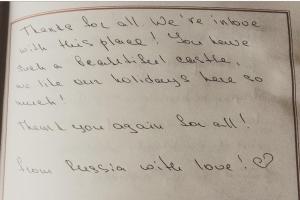 Thanks for all. We're inlove
with this place! You have
such a beautiful castle,
we like our holidays here so
much!
Thank you again for all!
From Russia with love! ♡